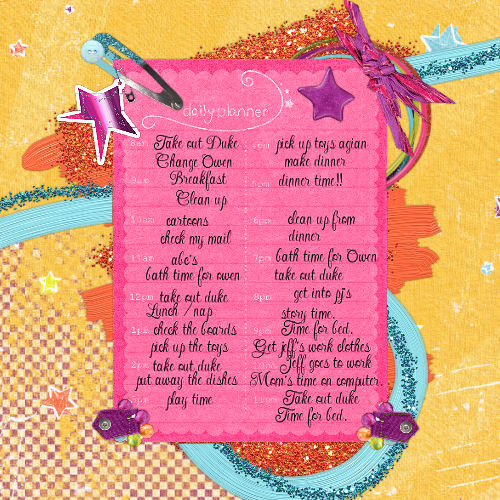 daily planner
8am Take out Duke
Change Owen
9am Breakfast
Clean up
10am cartoons
check my mail
11am abc's
bath time for owen
12pm take out duke
Lunch / nap
1pm check the boards
pick up the toys
2pm take out duke
put away the dishes
play time
pick up toys agian
make dinner
dinner time!!
6pm clean up from
dinner
7pm bath time for Owen
take out duke
8pm get into pj's
story time.
9pm Time for bed.
Get jeff's work clothes
Jeff goes to work
Mom's time on computer.
Take out duke
Time for bed.